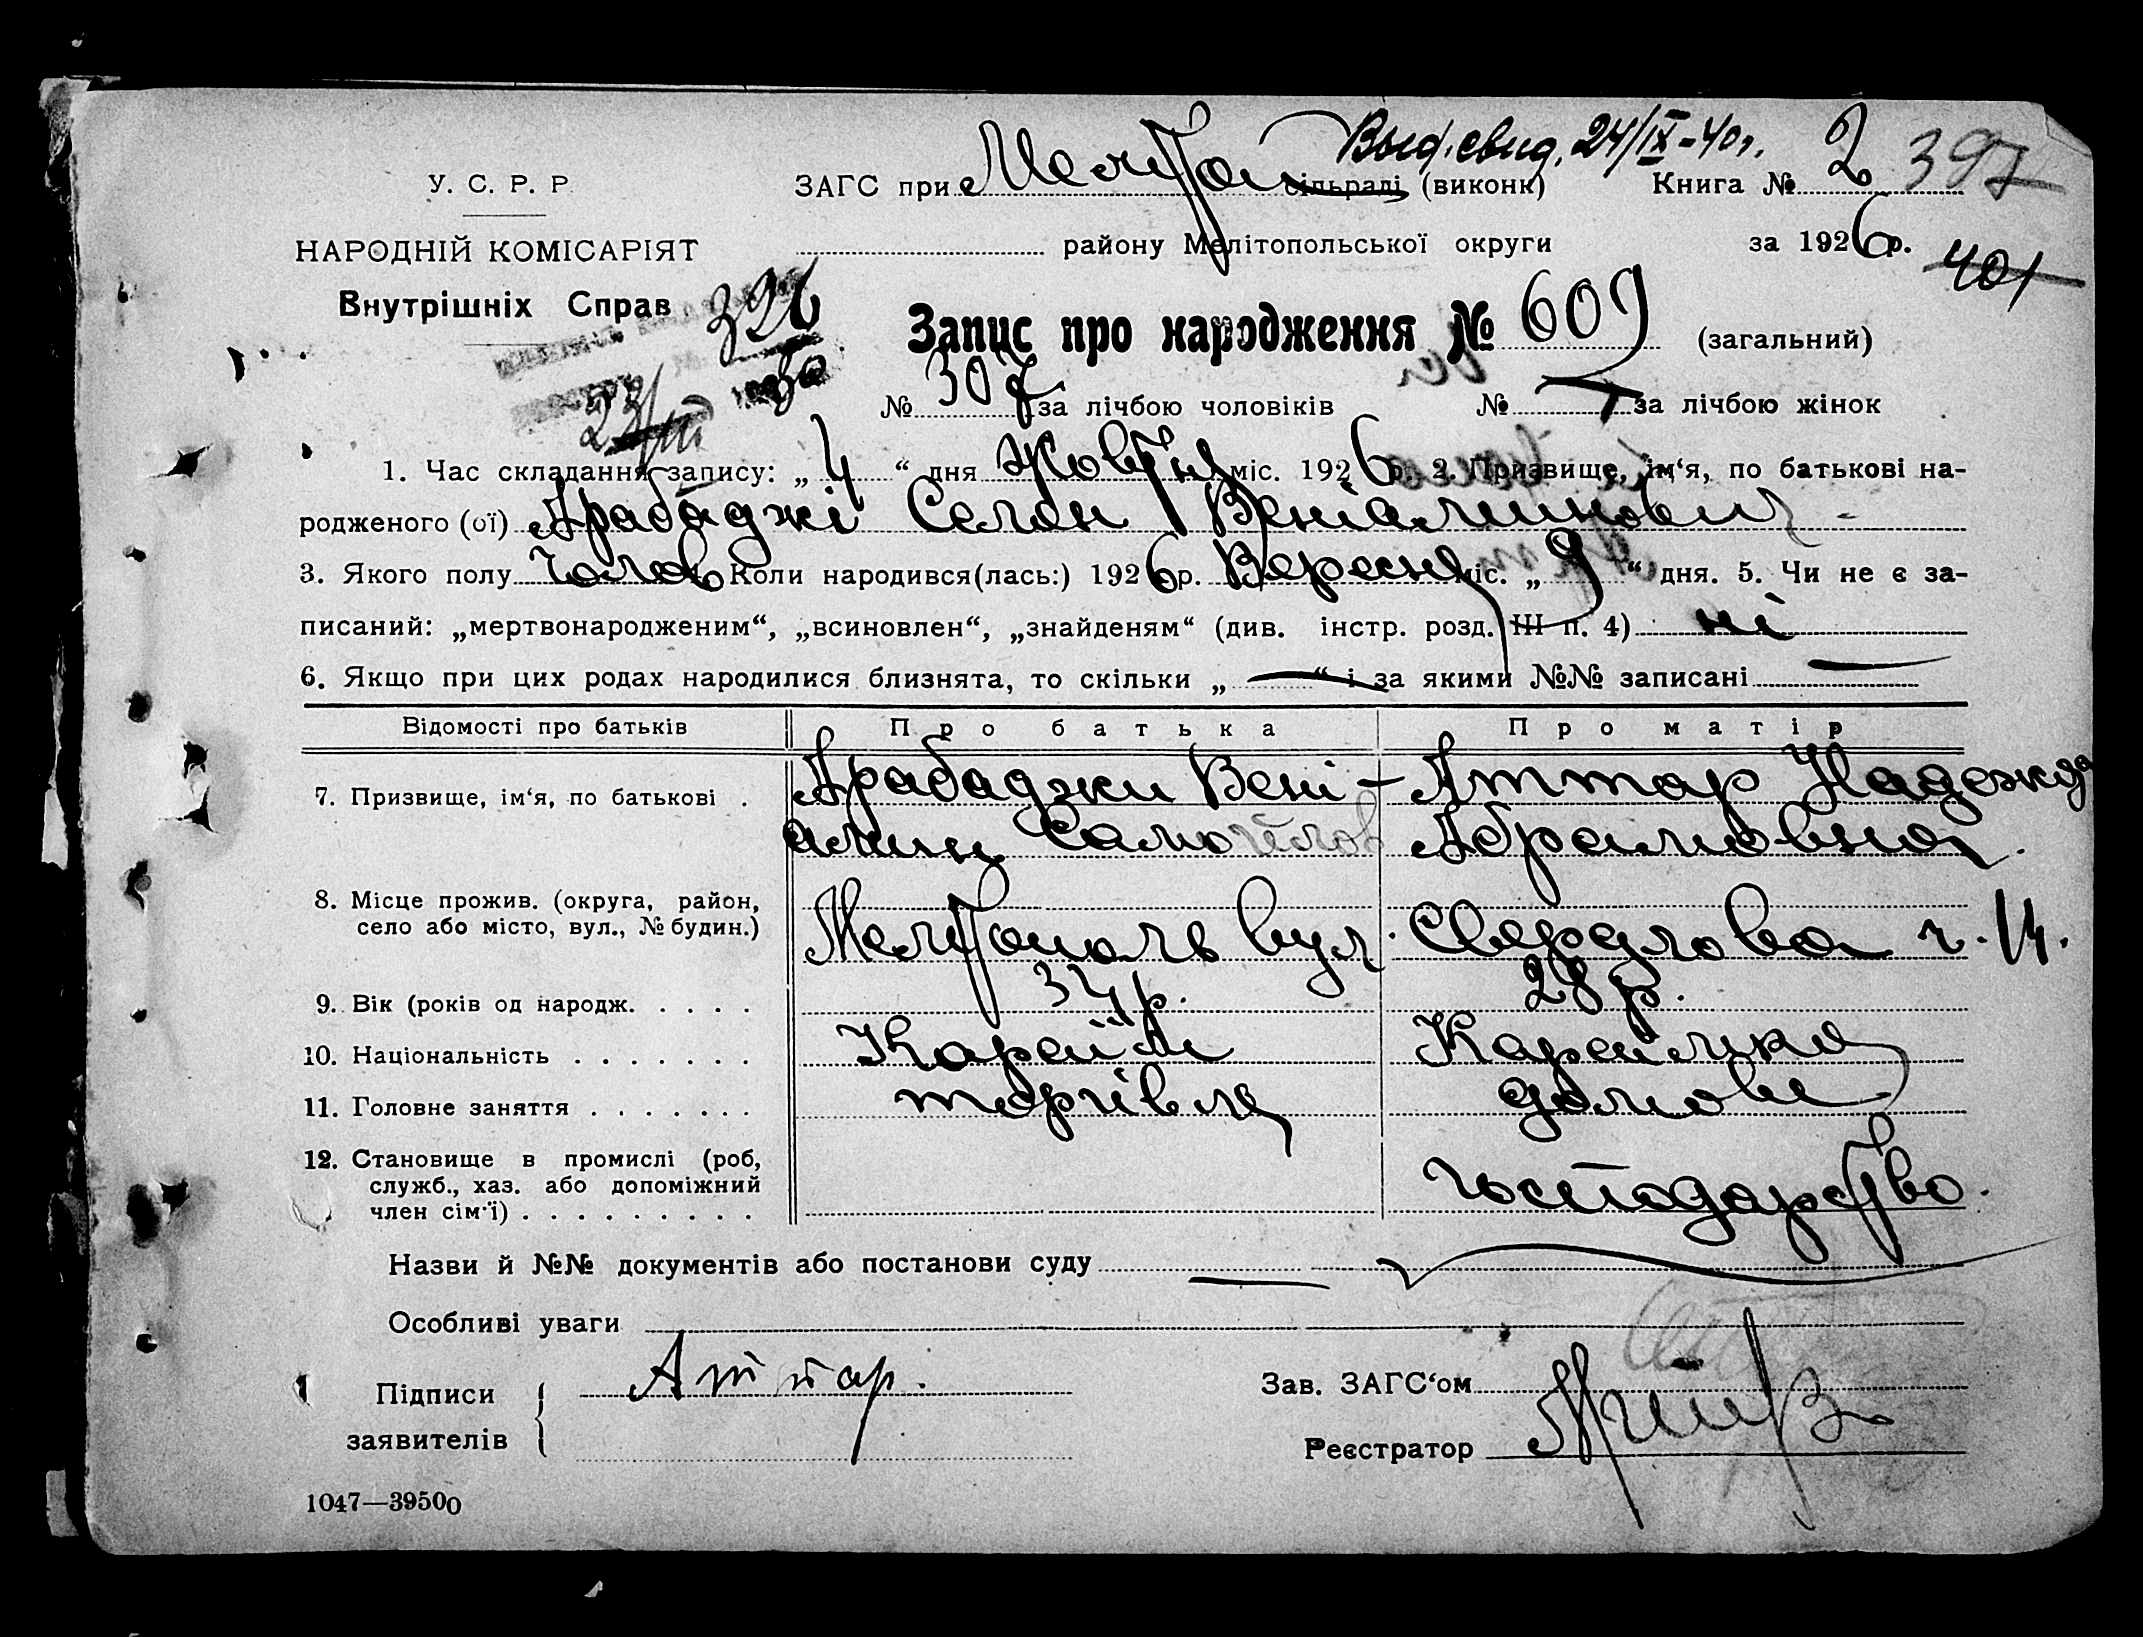 Выд. свид. 24/IX-40г.
У. С. Р. Р.
ЗАГС при Меліτοп сільраді (виконк) Книга № 2 397
НАРОДНІЙ КОМІСАРІЯТ
района Мелітопольської округи за 1926 р. 401
Внутрішніх Справ
Запис про народження № 609 (загальний)
№ 307 за лічбою чоловіків № за лічбою жінок
23/III
1. Час складання запису: „ 4 “ дня жовтня міс. 1926 р. 2. Призвище, ім‘я, по батькові на-
родженого (ої) Арабаджі Селон Веніаминович -
3. Якого полу чолов 4. Коли народився(лась:) 1926 р. Вересня міс. „ 9 “ дня. 5. Чи не є за-
писаний: „мертвонародженим“, „всиновлен“, „знайденям“ (див. інстр. розд. III п. 4) ні
6. Якщо при цих родах народилися близнята, то скільки „ — “ і за якими №№ записані —
Відомості про батьків Про батька Про матір
7. Призвище, ім‘я, по батькові . Арабаджи Вені- Аттар Надежда
амин Самойлов Абрамовна.
8. Місце прожив. (округа, район,
село або місто, вул., № будин.) Мелітополь вул. Свердлова ч. 14.
9. Вік (років од народж. . . . . 34 р. 28 р.
10. Національність . . . . . . . Караїм Караїмка
11. Головне заняття . . . . . . . торгівля домове
12. Становище в промислі (роб,
служб., хаз. або допоміжний господарство.
член сім‘ї) . . . . . . . . .
Назви й №№ документів або постанови суду —
Особливі уваги
Підписи Аттар. Зав. ЗАГС‘ом
заявителів Реєстратор
1047—39500